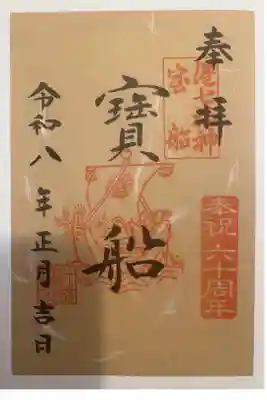 奉拝
七神
宝船
奉祝 六十周年
寶船
令和八年正月吉日